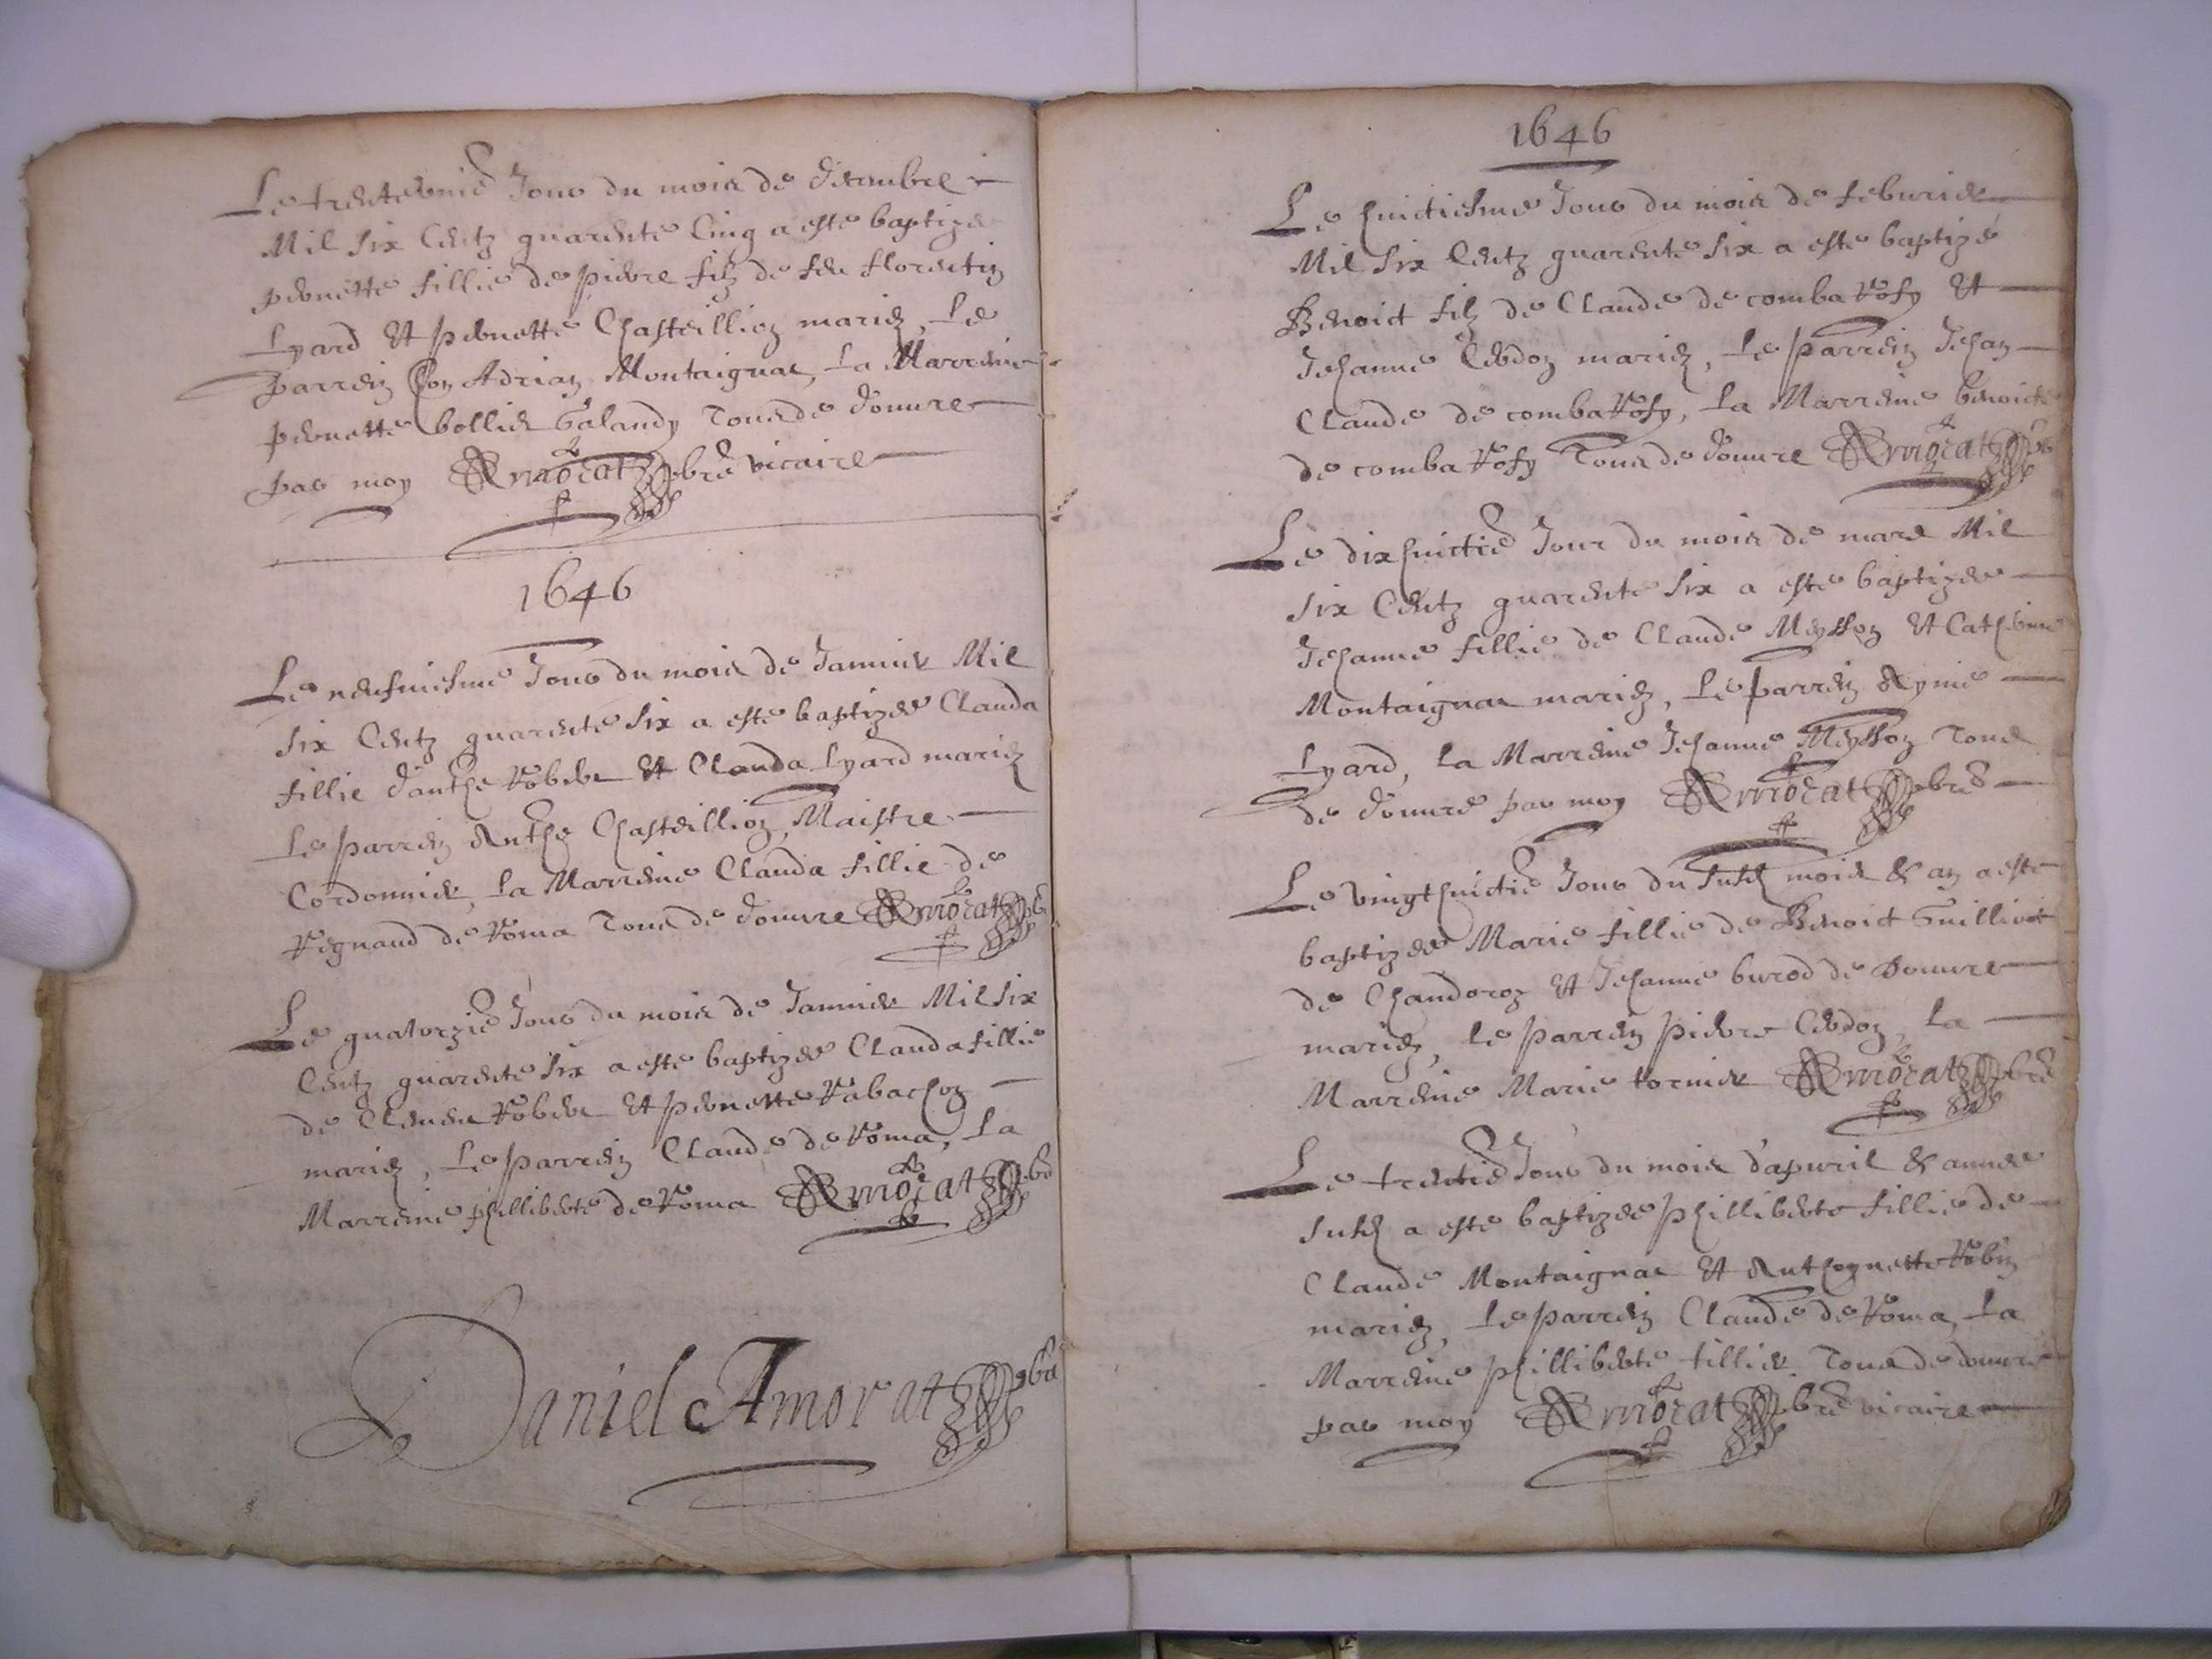 Le trenteunie Jour du mois de decembre
Mil six Centz quarente Cinq a esté baptizee
pernette fillie de pierre filz de feu florentin
Lyard et pernette Chasteillion mariez, Le
parrein Adrian Montaignac, La Marreine
pernette bollier Galandy Tous de douvre
par moy Amorat pbre vicaire
1646
Le neufviesme Jour du mois de Janvier Mil
six Centz quarente six a esté baptizee Clauda
fillie d'anthe Rober et Clauda Lyard mariez
Le parrein Anthe Chasteillion, Maistre
Cordonnier, La Marreine Clauda fillie de
Regnaud de Roma Tous de douvre Amorat pb
Le quatorzie Jour du mois de Janvier Mil six
Centz quarente six a esté baptizee Clauda fillie
de Rober et pernette Rabachon
mariez, Le parrein Claude de Roma, La
Marreine phelliberte de Roma Amorat pbre
Daniel Amorat pbre
1646
Le huictiesme Jour du mois de febvrier
Mil six Centz quarente six a esté baptizé
Benoict filz de Claude de comba Rosy et
Jehanne Cerdon mariez, Le parrein Jehan
Claude de comba Rosy, La Marreine benoicte
de comba Rosy Tous de douvre Amorat pb
Le dixhuictie Jour du mois de mars Mil
six Centz quarente six a esté baptizee
Jehanne fillie de Claude Meysson et Catherine
Montaignac mariez, Le parrein Aymé
Lyard, La Marreine Jehanne Meysson Tous
de douvre par moy Amorat pbre
Le vingthuictie Jour du susd mois & an a esté
baptizee Marie fillie de Benoict Guilliot
de Chandoron et Jehanne burod de Douvre
mariez, Le parrein pierre Cerdon, La
Marreine Marie tornier Amorat pbre
Le trentie Jour du mois d'apvril & annee
susd a esté baptizee philliberte fillie de
Claude Montaignac et Anthoynette Robin
mariez, Le parrein Claude de Roma, La
Marreine philliberte tillier Tous de douvre
par moy Amorat pbre vicaire